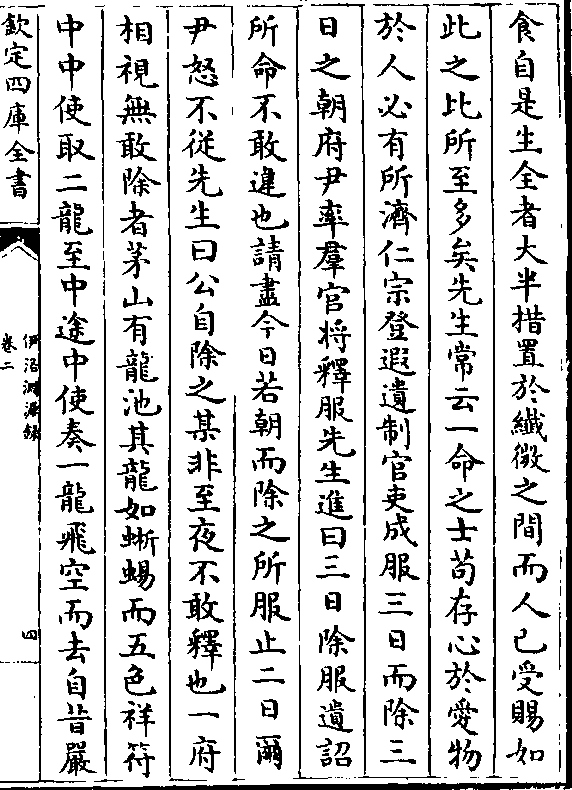 食自是生全者大半措置於纖微之間而人已受賜如
此之比所至多矣先生常云一命之士苟存心於愛物
於人必有所濟仁宗登遐遺制官吏成服三日而除三
日之朝府尹率羣官將釋服先生進曰三日除服遺詔
所命不敢違也請盡今日若朝而除之所服止二日爾
尹怒不從先生曰公自除之某非至夜不敢釋也一府
相視無敢除者茅山有龍池其龍如蜥蜴而五色祥符
中中使取二龍至中途中使奏一龍飛空而去自昔嚴
欽定四庫全書
伊洛淵源錄
卷二
四